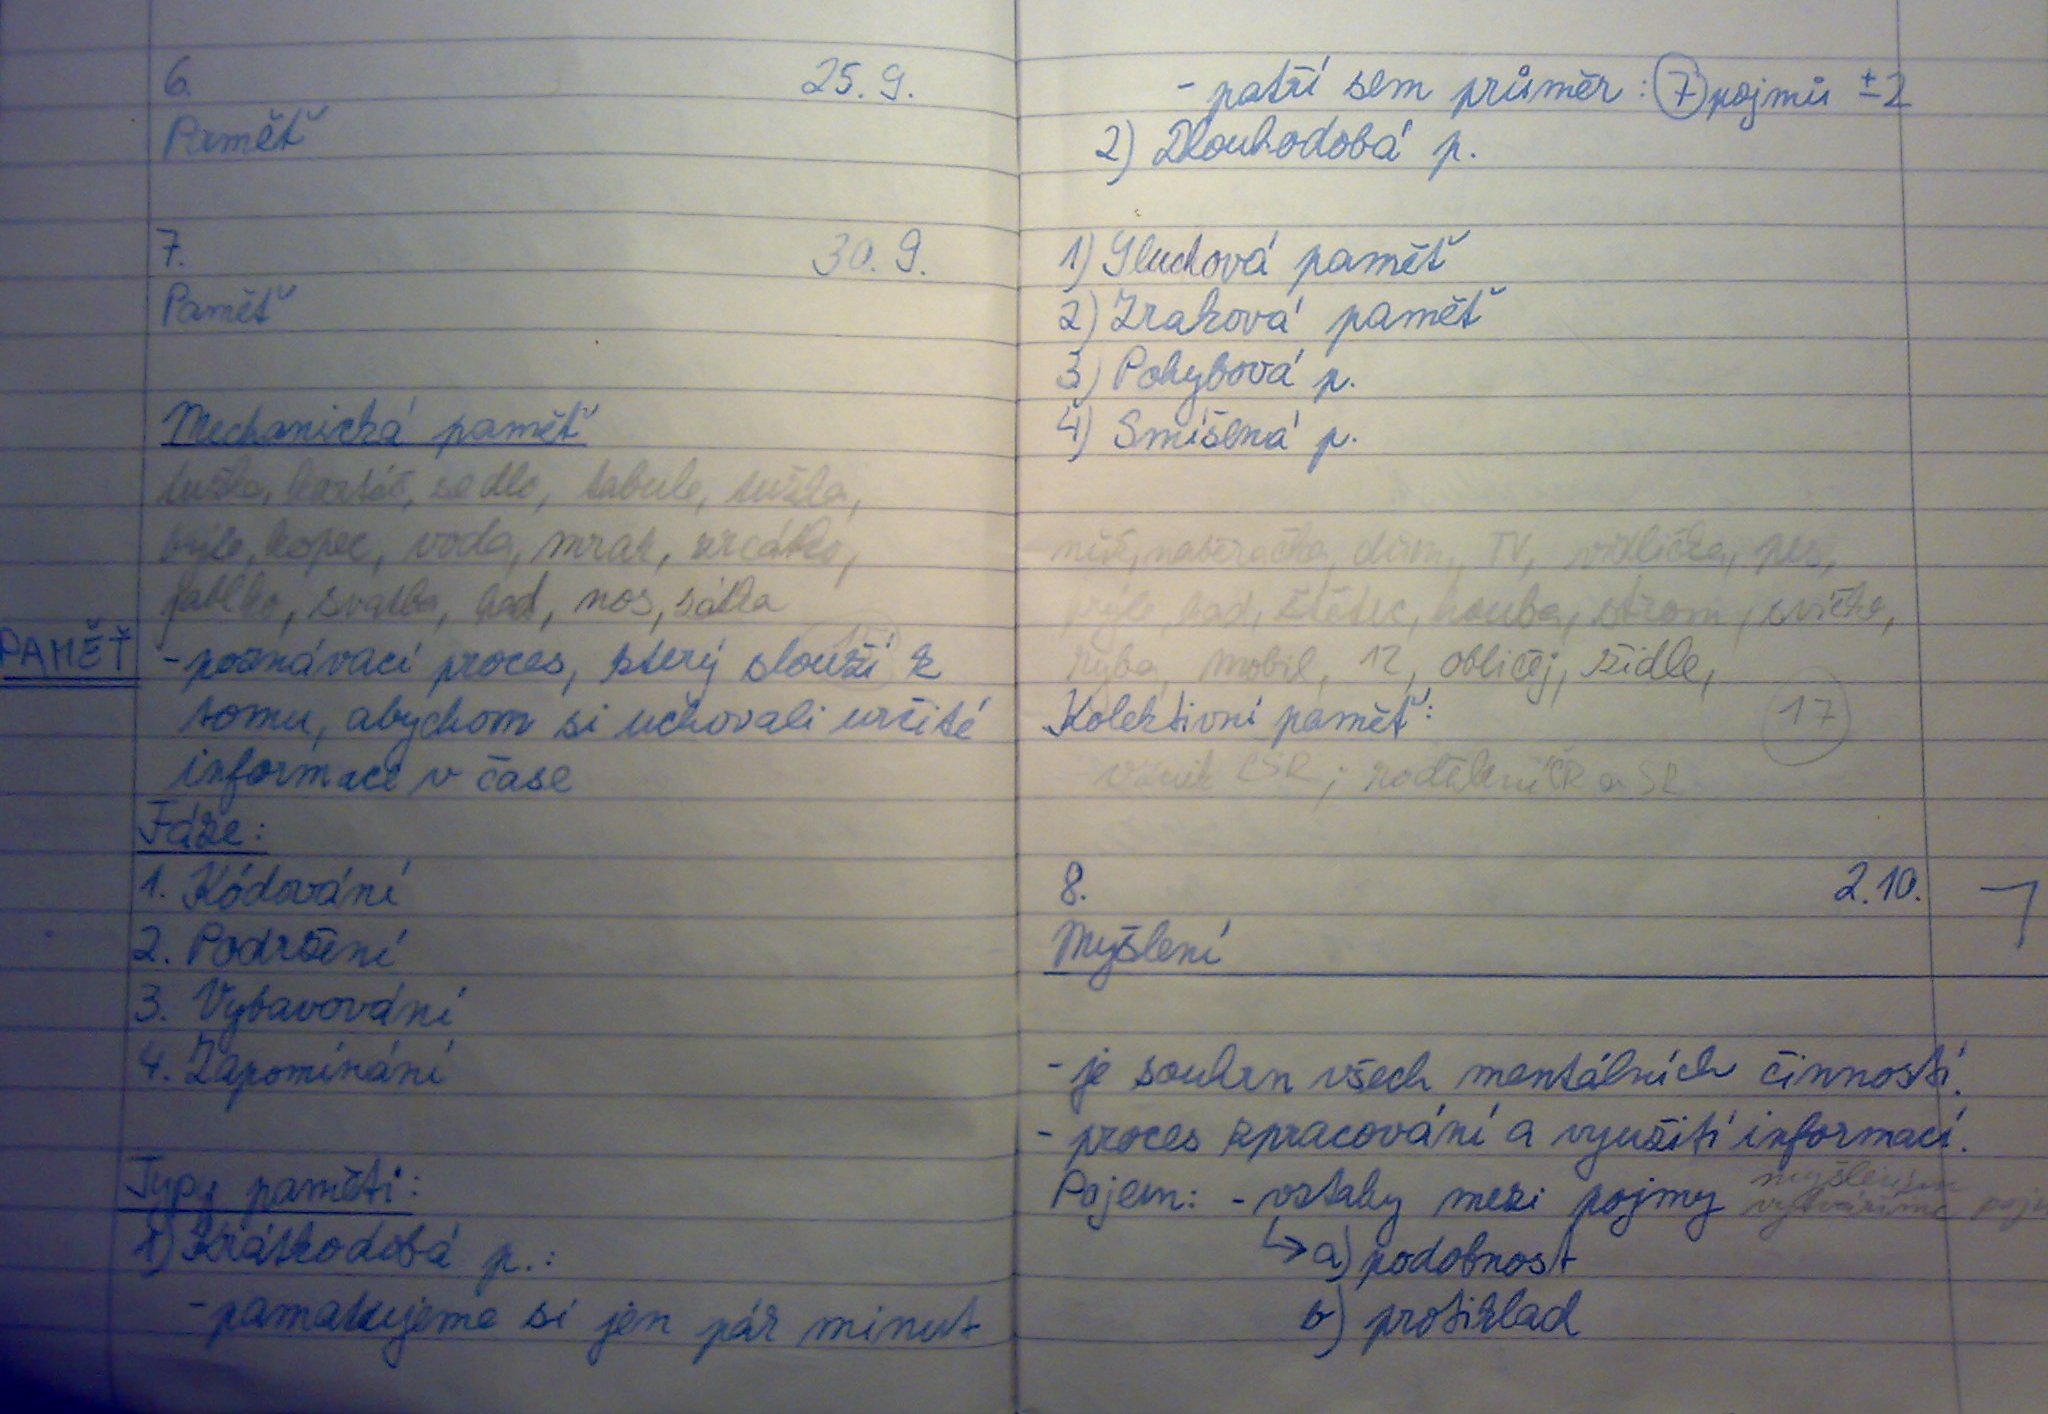 6. 25. 9.
Paměť
7. 30. 9.
Paměť
Mechanická paměť
tužka, kartáč, sedlo, tabule, tužka,
brýle, kopec, voda, mrak, zrcátko,
jablko, svatba, had, nos, šátka
PAMĚŤ
- poznávací proces, který slouží k
tomu, abychom si uchovali určité
informace v čase
Fáze:
1. Kódování
2. Podržení
3. Vybavování
4. Zapomínání
Typy paměti:
1) Krátkodobá p.:
- pamatujeme si jen pár minut
- patří sem průměr: 7 pojmů ± 2
2) Dlouhodobá p.
1) Sluchová paměť
2) Zraková paměť
3) Pohybová p.
4) Smíšená p.
nůž, naběračka, dům, TV, vidlička, pes,
brýle, had, štětec, houba, strom, svíčka,
ryba, mobil, 12, obličej, židle,
17
Kolektivní paměť:
vznik ČSR; rozdělení ČR a SR
8. 2. 10.
Myšlení
- je souhrn všech mentálních činností.
- proces zpracování a využití informací.
Pojem: - vztahy mezi pojmy myšlením
vytváříme poj
↳ a) podobnost
b) protiklad